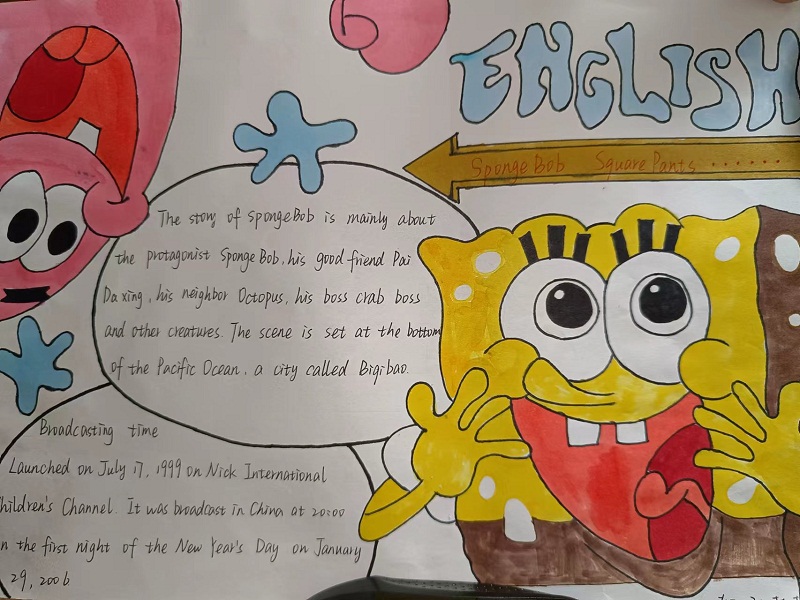 ENGLISH
SpongeBob SquarePants ......
The story of SpongeBob is mainly about
the protagonist SpongeBob, his good friend Pai
Da xing, his neighbor Octopus, his boss crab boss
and other creatures. The scene is set at the bottom
of the Pacific Ocean, a city called Biqibao.
Broadcasting time
Launched on July 17, 1999 on Nick International
hildren's Channel. It was broadcast in China at 20:00
n the first night of the New Year's Day on January
29, 2006